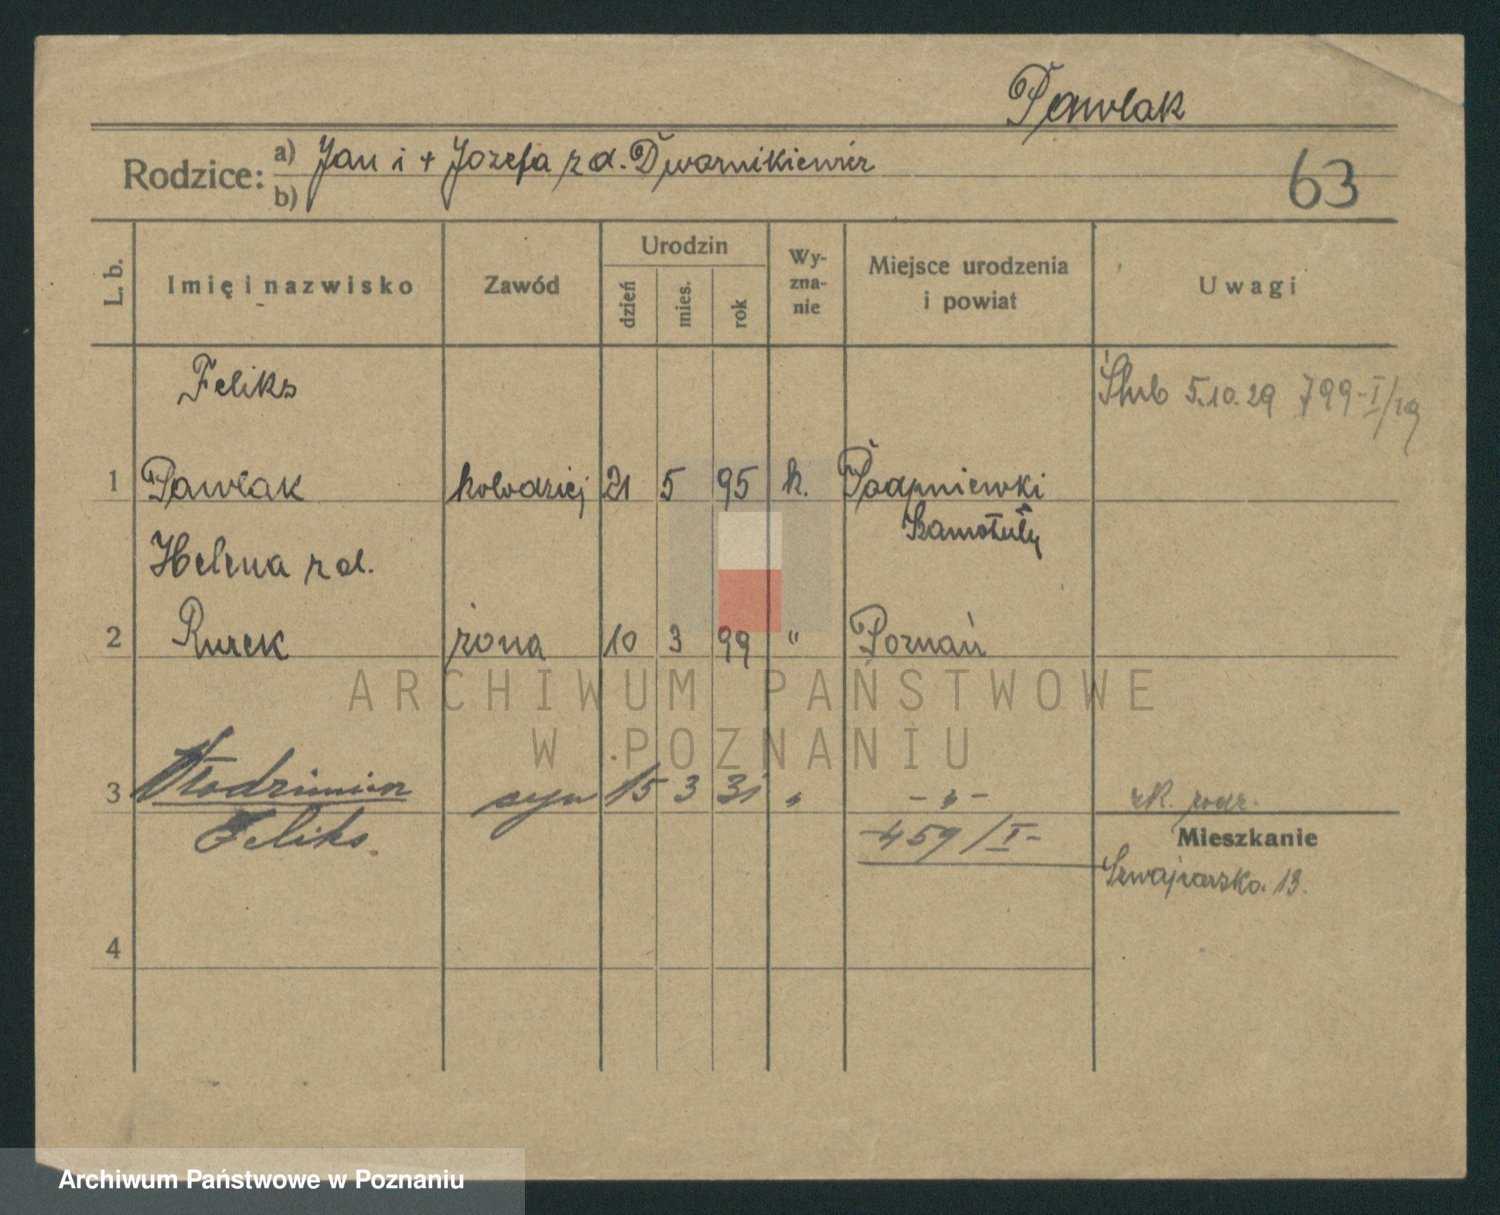 Pawlak
Rodzice: a) Jan i + Józefa zd. Dwornikiewicz
b)
63
L. b. Imię i nazwisko Zawód Urodzin dzień mies. rok Wyznanie Miejsce urodzenia i powiat Uwagi
Feliks Ślub 5.10.29 799-I/29
1 Pawlak kołodziej 21 5 95 k. Podpniewki
Szamotuły
Helena zd.
2 Rurek żona 10 3 99 " Poznań
ARCHIWUM PAŃSTWOWE
W POZNANIU
3 Włodzimierz syn 15 3 31 " -"- rk. rodz.
Feliks 459/I- Mieszkanie
Szwajcarska 13.
4
Archiwum Państwowe w Poznaniu